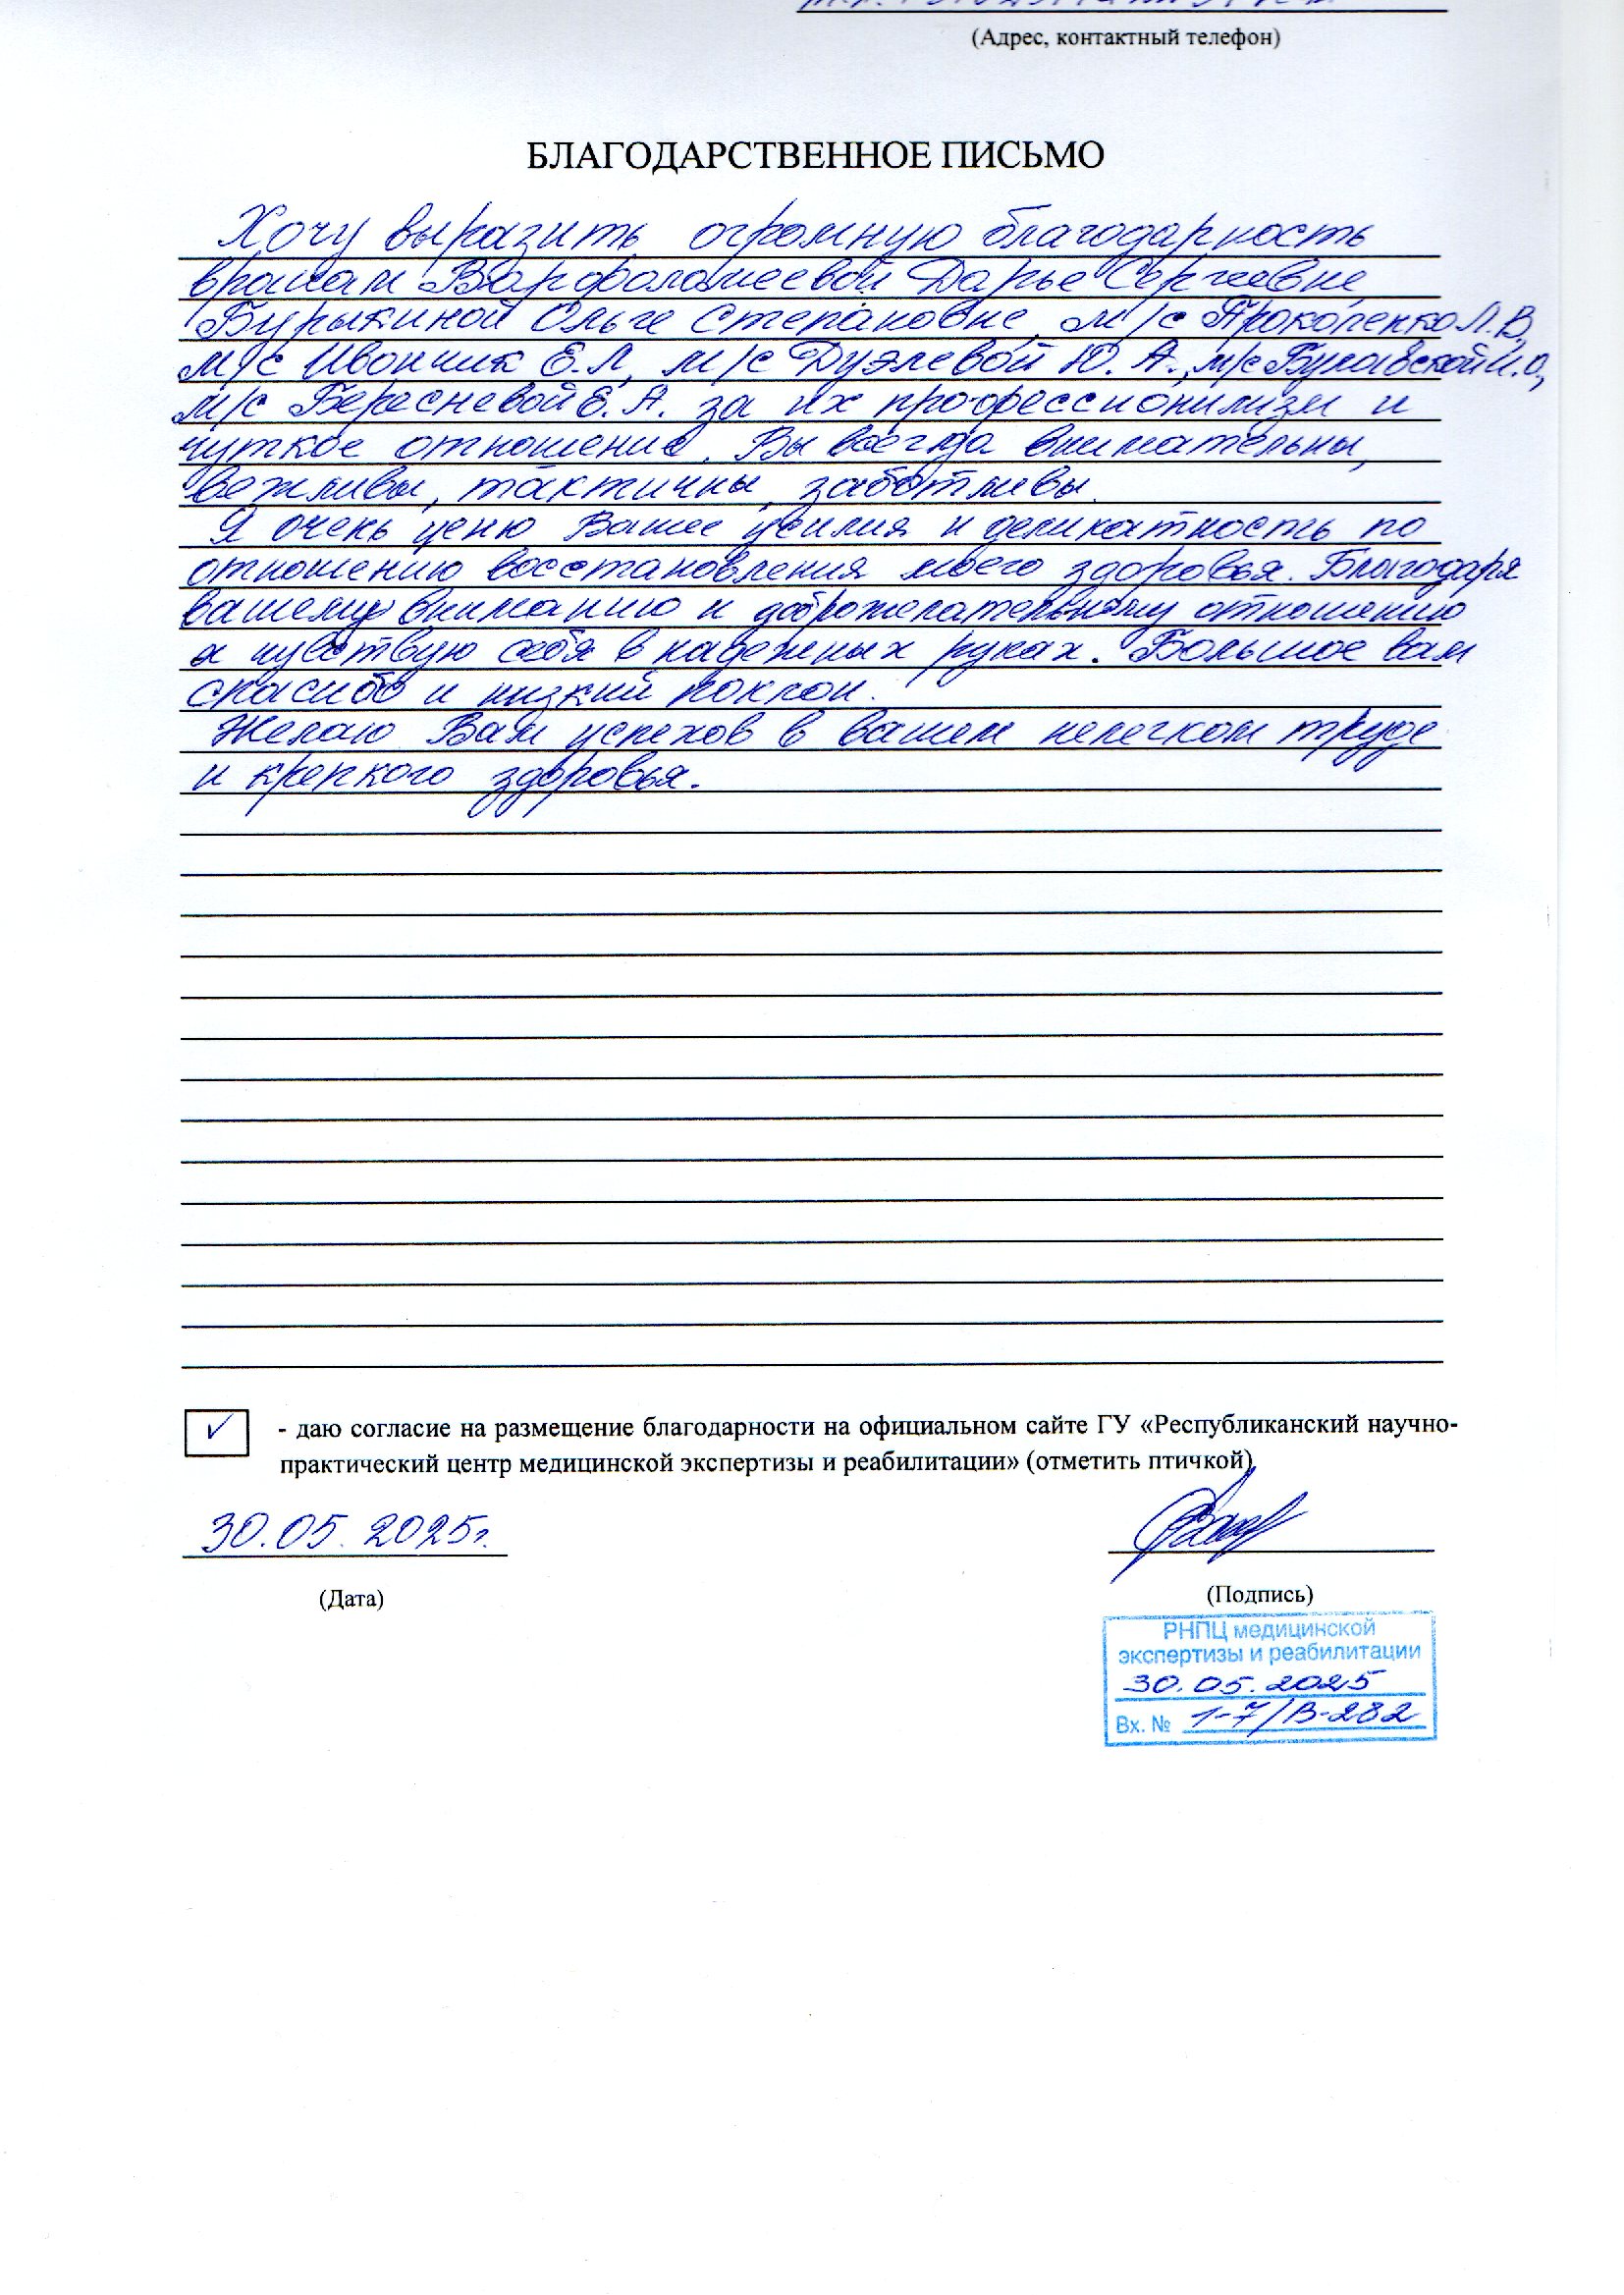 (Адрес, контактный телефон)
БЛАГОДАРСТВЕННОЕ ПИСЬМО
Хочу выразить огромную благодарность
врачам Варфоломеевой Дарье Сергеевне,
Бурыкиной Ольге Степановне, м/с Прокопенко Л.В,
м/с Ивончик Е.Л, м/с Дуэлевой Ю.А., м/с И.О,
м/с Бересневой Е.А. за их профессионализм и
чуткое отношение. Вы всегда внимательны,
вежливы, тактичны, заботливы.
Я очень ценю Ваше усилия и деликатность по
отношению восстановления моего здоровья. Благодаря
вашему вниманию и доброжелательному отношению
я чувствую себя в надежных руках. Большое вам
спасибо и низкий поклон.
Желаю Вам успехов в вашем нелегком труде
и крепкого здоровья.
✓ - даю согласие на размещение благодарности на официальном сайте ГУ «Республиканский научно-
практический центр медицинской экспертизы и реабилитации» (отметить птичкой)
30.05.2025г.
(Дата)
(Подпись)
РНПЦ медицинской
экспертизы и реабилитации
30.05.2025
Вх. № 1-7/В-282